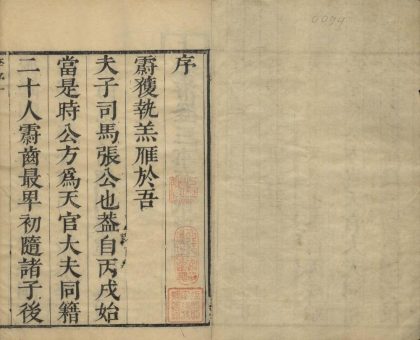 序
霨獲執羔雁於吾
夫子司馬張公也葢自丙戌始
當是時公方爲天官大夫同籍
二十人霨齒最卑初隨諸子後
0099